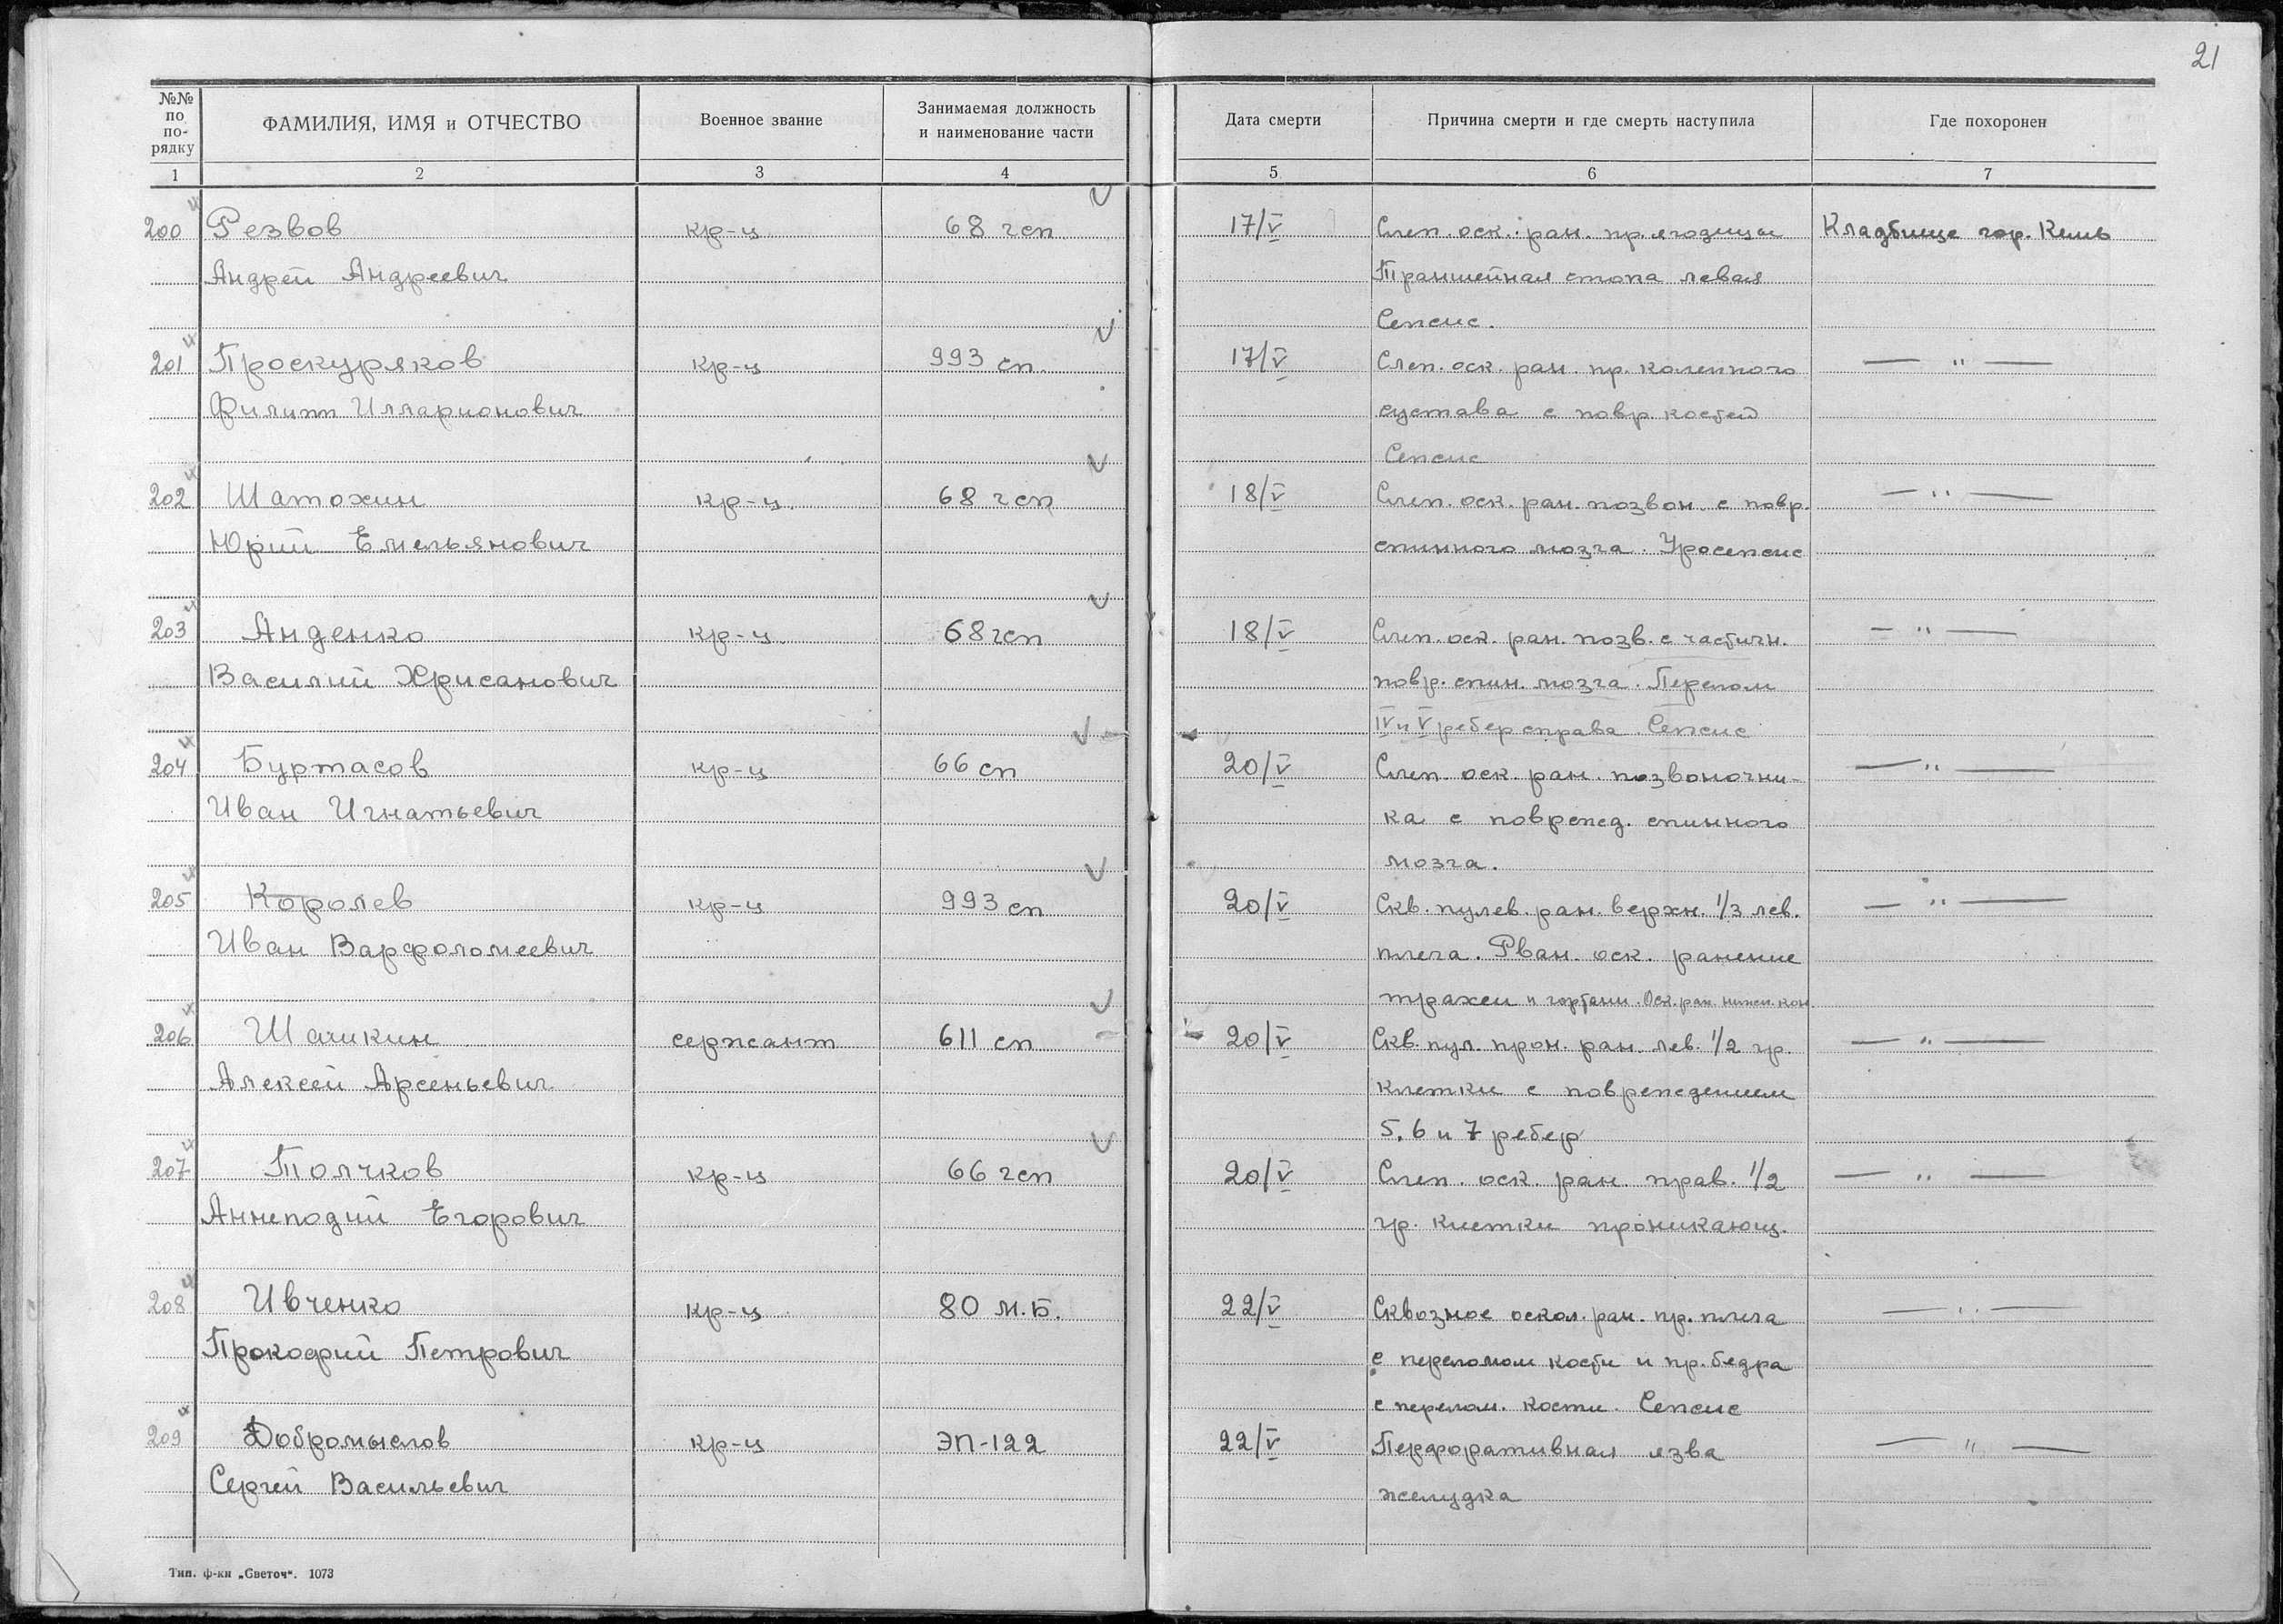 21
№№ по по-рядку
ФАМИЛИЯ, ИМЯ и ОТЧЕСТВО
Военное звание
Занимаемая должность и наименование части
Дата смерти
Причина смерти и где смерть наступила
Где похоронен
1 2 3 4 5 6 7
200 Резвов кр-ц 68 гсп 17/V Слеп. оск. ран. пр. ягодицы Кладбище гор. Кемь
Андрей Андреевич Траншейная стопа левая
Сепсис.
201 Проскуряков кр-ц 993 сп. 17/V Слеп. оск. ран. пр. коленного — " —
Филипп Илларионович сустава с повр. костей
Сепсис
202 Шатохин кр-ц. 68 гсп 18/V Слеп. оск. ран. позвон. с повр. — " —
Юрий Емельянович спинного мозга. Уросепсис
203 Анденко кр-ц 68 гсп 18/V Слеп. оск. ран. позв. с частичн. — " —
Василий Хрисанович повр. спин. мозга. Перелом
IV и V ребер справа. Сепсис
204 Буртасов кр-ц 66 сп 20/V Слеп. оск. ран. позвоночни- — " —
Иван Игнатьевич ка с поврежд. спинного
мозга.
205 Королев кр-ц 993 сп 20/V Скв. пулев. ран. верхн. 1/3 лев. — " —
Иван Варфоломеевич плеча. Рван. оск. ранение
трахеи и гортани. Оск. ран. нижн. кон
206 Шашкин сержант 611 сп 20/V Скв. пул. прон. ран. лев. 1/2 гр. — " —
Алексей Арсеньевич клетки с повреждением
5, 6 и 7 ребер
207 Полчков кр-ц 66 гсп 20/V Слеп. оск. ран. прав. 1/2 — " —
Аннеподий Егорович гр. клетки проникающ.
208 Ивченко кр-ц 80 м.б. 22/V Сквозное оскол. ран. пр. плеча — " —
Прокофий Петрович с переломом кости и пр. бедра
с перелом. кости. Сепсис
209 Добромыслов кр-ц ЭП-122 22/V Перфоративная язва — " —
Сергей Васильевич желудка
Тип. ф-ки „Светоч". 1073